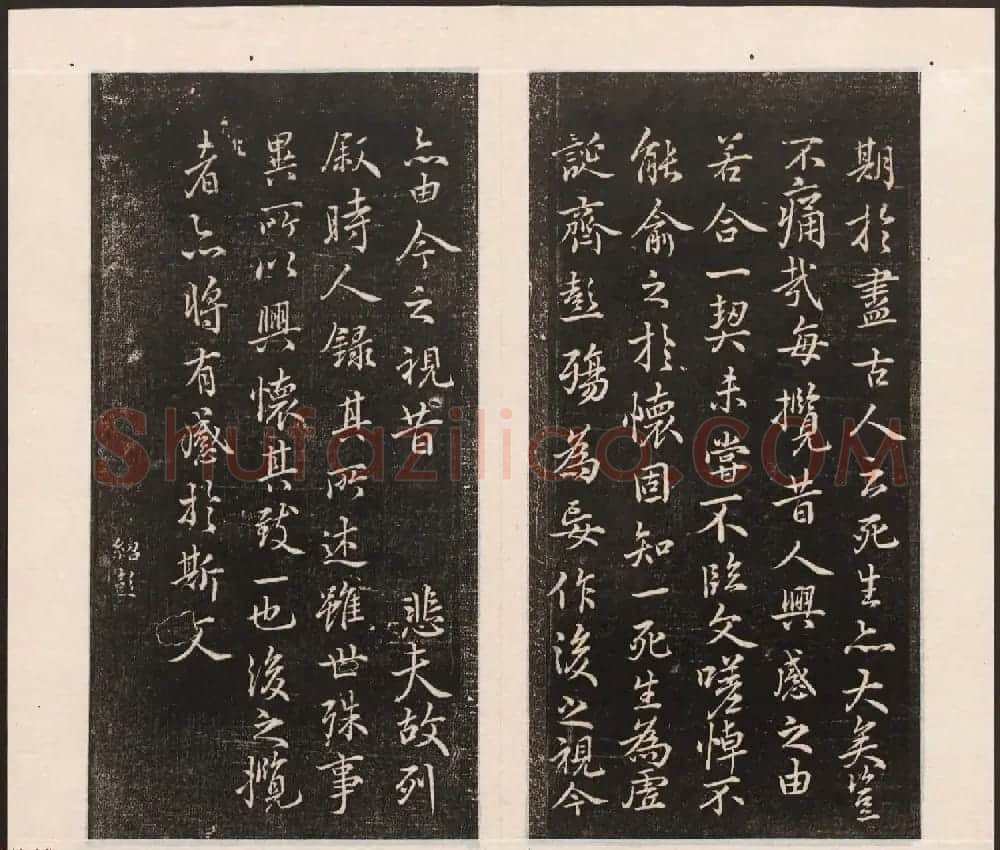 期於盡古人云死生亦大矣豈
不痛哉每攬昔人興感之由
若合一契未嘗不臨文嗟悼不
能喻之於懷固知一死生為虛
誕齊彭殤為妄作後之視今
亦由今之視昔 悲夫故列
叙時人錄其所述雖世殊事
異所以興懷其致一也後之攬
者亦將有感於斯文
紹彭
Shufazilico.COM